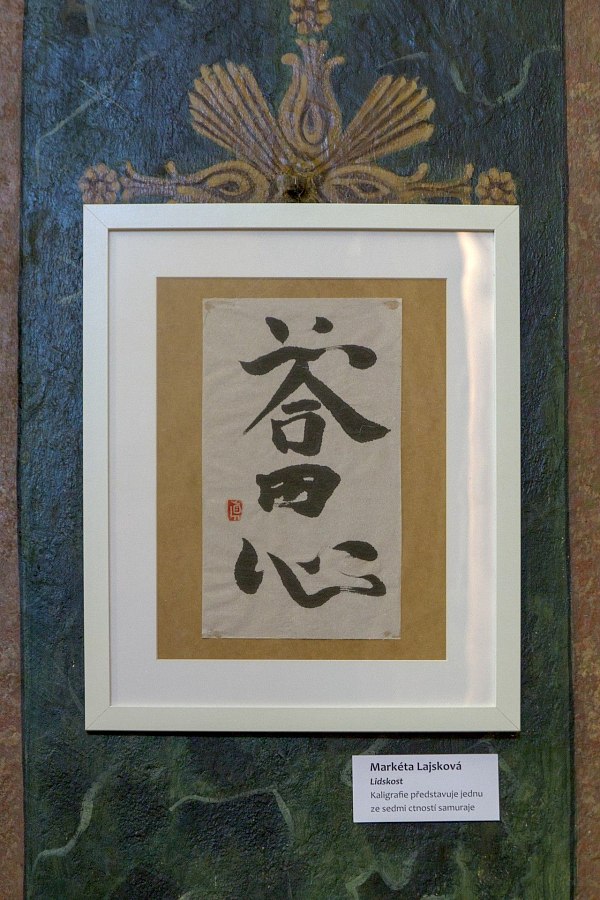 荅
心
Markéta Lajsková
Lidskost
Kaligrafie představuje jednu
ze sedmi ctností samuraje